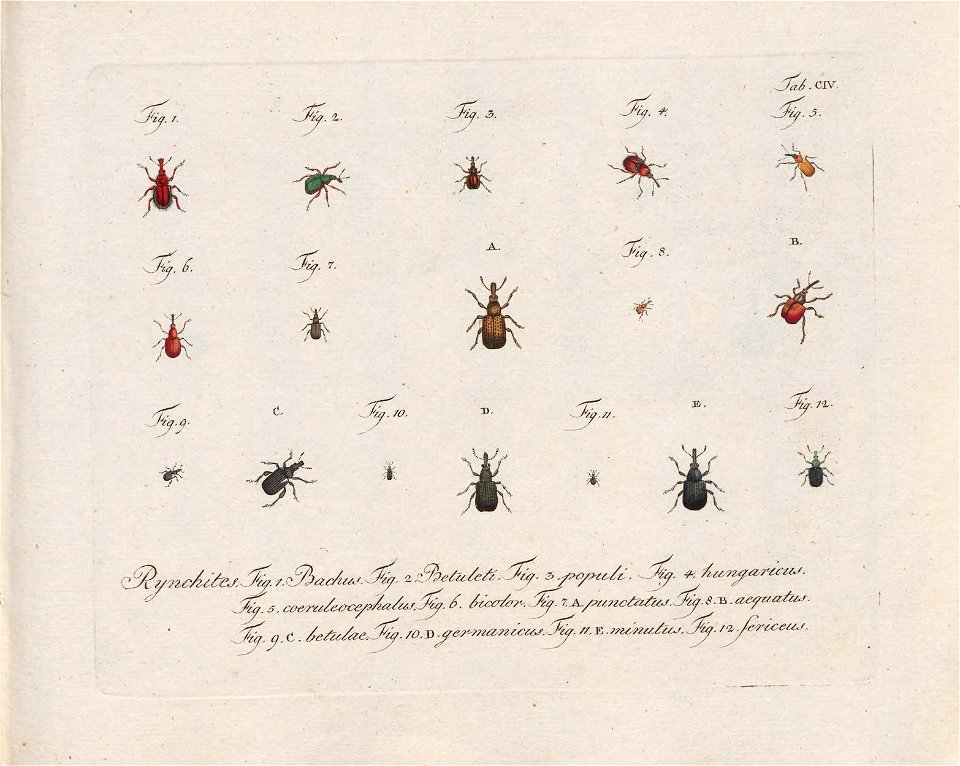 Tab. CIV.
Fig. 1. Fig. 2. Fig. 3. Fig. 4. Fig. 5.
Fig. 6. Fig. 7. A. Fig. 8. B.
Fig. 9. C. Fig. 10. D. Fig. 11. E. Fig. 12.
Rynchites Fig. 1. Bachus. Fig. 2. Betuleti. Fig. 3. populi. Fig. 4. hungaricus.
Fig. 5. coeruleocephalus. Fig. 6. bicolor. Fig. 7. A. punctatus. Fig. 8. B. aequatus.
Fig. 9. C. betulae. Fig. 10. D. germanicus. Fig. 11. E. minutus. Fig. 12. sericeus.